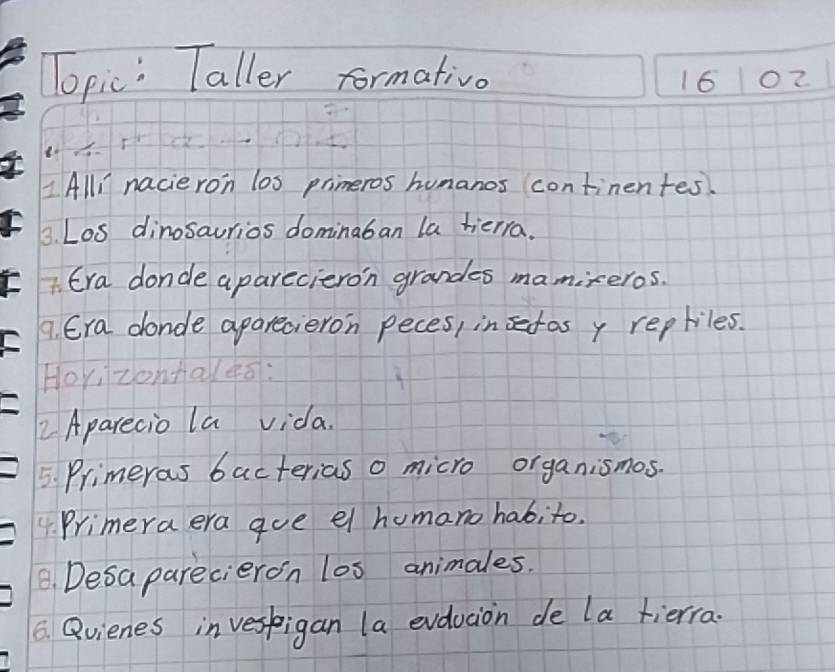 Topic: Taller formativo 16 02
1 Allí nacierón los primeros humanos (continentes).
3. Los dinosaurios dominaban la tierra.
7. Era donde aparecierón grandes mamiferos.
9. Era donde aparecierón peces, insectos y reptiles.
Horizontales:
2 Aparecio la vida.
5. Primeras bacterias o micro organismos.
4. Primera era que el humano habito.
8. Desaparecierón los animales.
6. Quienes investigan la evolución de la tierra.